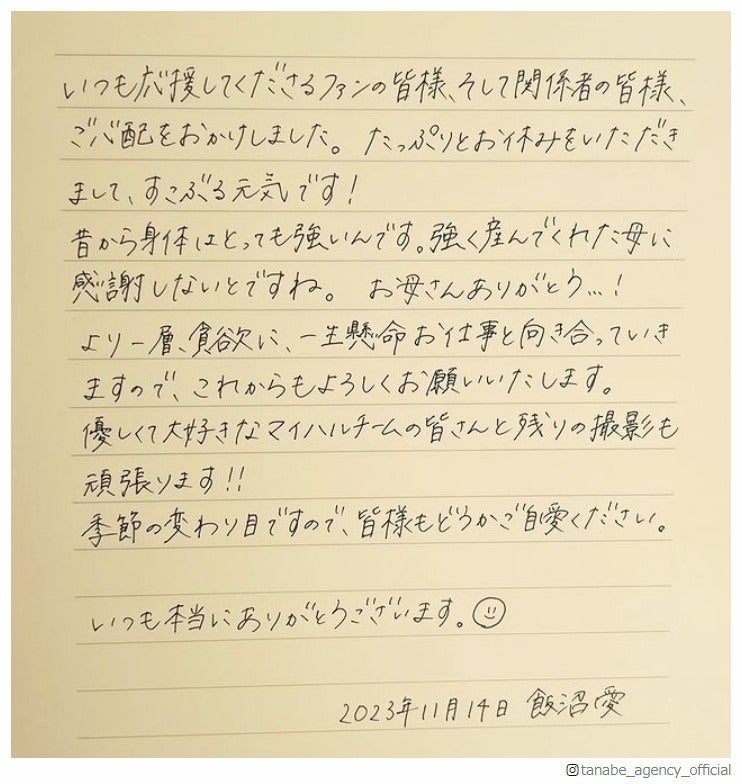 いつも応援してくださるファンの皆様、そして関係者の皆様、
ご心配をおかけしました。 たっぷりとお休みをいただき
まして、すこぶる元気です!
昔から身体はとっても強いんです。強く産んでくれた母に
感謝しないとですね。 お母さんありがとう...!
より一層、貪欲に、一生懸命お仕事と向き合っていき
ますので、これからもよろしくお願いいたします。
優しくて大好きなマイハルチームの皆さんと残りの撮影も
頑張ります!!
季節の変わり目ですので、皆様もどうかご自愛ください。
いつも本当にありがとうございます。☺
2023年11月14日 飯沼愛
@tanabe_agency_official